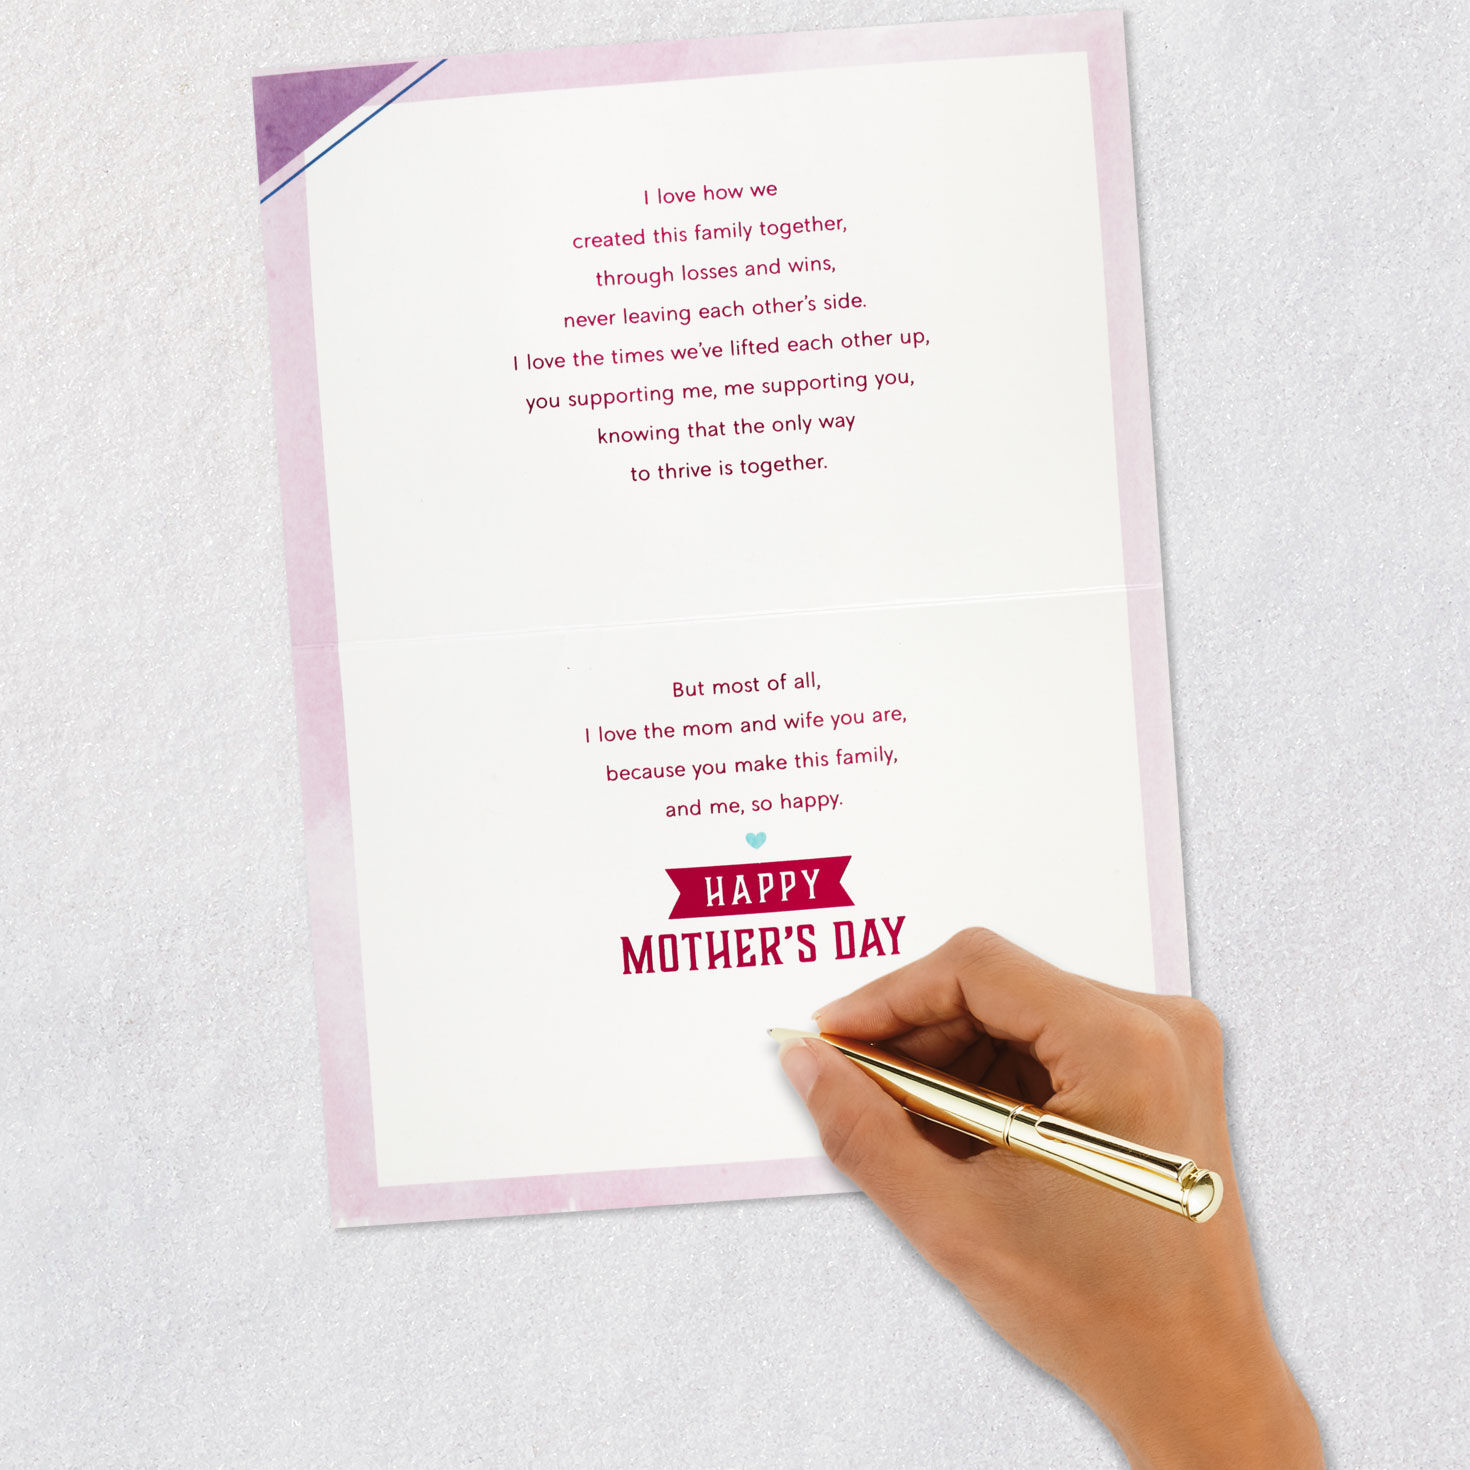 I love how we
created this family together,
through losses and wins,
never leaving each other's side.
I love the times we've lifted each other up,
you supporting me, me supporting you,
knowing that the only way
to thrive is together.
But most of all,
I love the mom and wife you are,
because you make this family,
and me, so happy.
HAPPY
MOTHER'S DAY